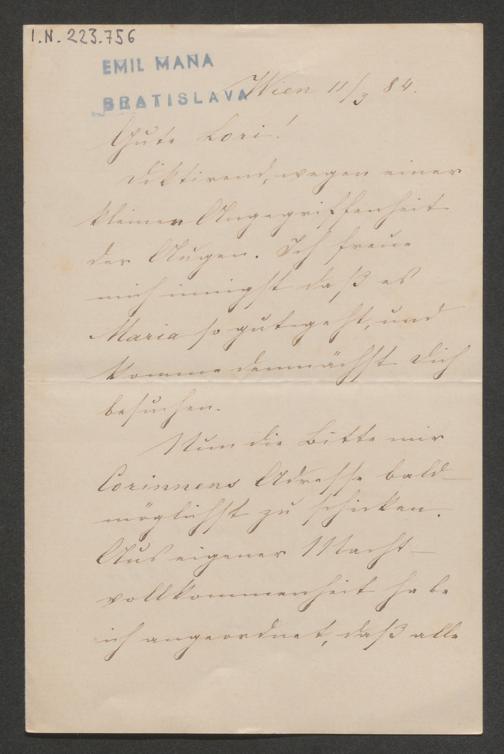 I.N. 223.756
EMIL MAŇA
BRATISLAVA
Wien 11/3 84.
Gute Lori!
Diktirend, wegen einer
kleinen Angegriffenheit
der Augen. Ich freue
mich innigst daß es
Maria so gut geht, und
komme demnächst Dich
besuchen.
Nun die Bitte mir
Corinnens Adresse bald-
möglichst zu schicken.
Aus eigener Macht-
vollkommenheit habe
ich angeordnet, daß alle